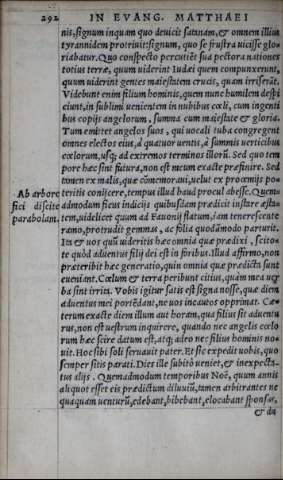 292 IN EVANG. MATTHAEI
nis, signum inquam quo deuicit satanam, & omnem illius
tyrannidem protriuit: signum, quo se frustra uicisse glo
riabatur. Quo conspecto percutiẽt sua pectora nationes
totius terræ, quum uiderint Iudæi quem compunxerunt,
quum uiderint gentes maiestatem crucis, quam irriserãt.
Videbunt enim filium hominis, quem nunc humilem despi
ciunt, in sublimi uenientem in nubibus cœli, cum ingenti
bus copijs angelorum, summa cum maiestate & gloria.
Tum emittet angelos suos, qui uocali tuba congregent
omnes electos eius, à quatuor uentis, à summis uerticibus
cœlorum, usq; ad extremos terminos illorũ. Sed quo tem
pore hæc sint futura, non est meum exacte præfinire. Sed
tamen ex malis, quæ cõmemoraui, uelut ex proximis po-
teritis conijcere, tempus illud haud procul abesse. Quem-
Ab arbore
fici discite
parabolam.
admodum ficus indicijs quibusdam prædicit instare æsta-
tem, uidelicet quum ad Fauonij flatum, iam tenerescente
ramo, protrudit gemmas, ac folia quodãmodo parturit.
Ita & uos quũ uideritis hæc omnia quæ prædixi, scito-
te quòd aduentus filij dei est in foribus. Illud affirmo, non
præteribit hæc generatio, quin omnia quæ prædicta sunt
eueniant. Cœlum & terra peribunt citius, quàm mea uer
ba sint irrita. Vobis igitur satis est signa nosse, quæ diem
aduentus mei portẽdant, ne uos incautos opprimat. Cæ-
terum exacte diem illum aut horam, qua filius sit aduentu
rus, non est uestrum inquirere, quando nec angelis cœlo
rum hæc scire datum est, atq; adeo nec filius hominis no-
uit. Hoc sibi soli seruauit pater. Et sic expedit uobis, quo
semper sitis parati. Dies ille subitò ueniet, & inexpecta-
tus alijs. Quemadmodum temporibus Noë, quum annis
aliquot esset eis prædictum diluuiũ, tamen arbitrantes ne
quaquam uenturũ, edebant, bibebant, elocabant sponsas,
& du